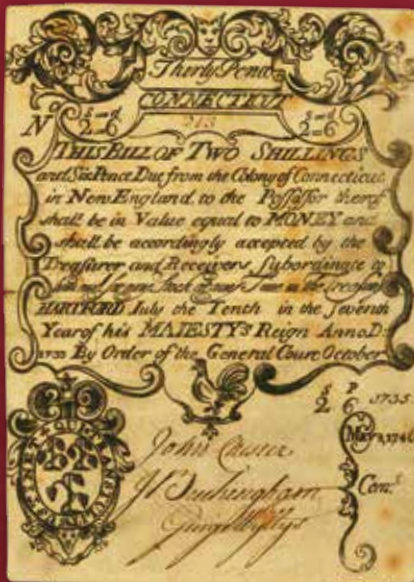 Thirty Pence
CONNECTICUT
No
s d
2=6
213
s d
2=6
THIS BILL OF TWO SHILLINGS
and Six Pence Due from the Colony of Connecticut
in New England to the Possessor therof
shall be in Value equal to MONEY and
shall be accordingly accepted by the
Treasurer and Receivers Subordinate to
him and for any Stock at any Time in the Treasury
HARTFORD July the Tenth in the Seventh
Year of his MAJESTYs Reign Anno D:
1733 By Order of the General Court October
s P
2 6 1735
May 8, 1740
John Chester
Con.t